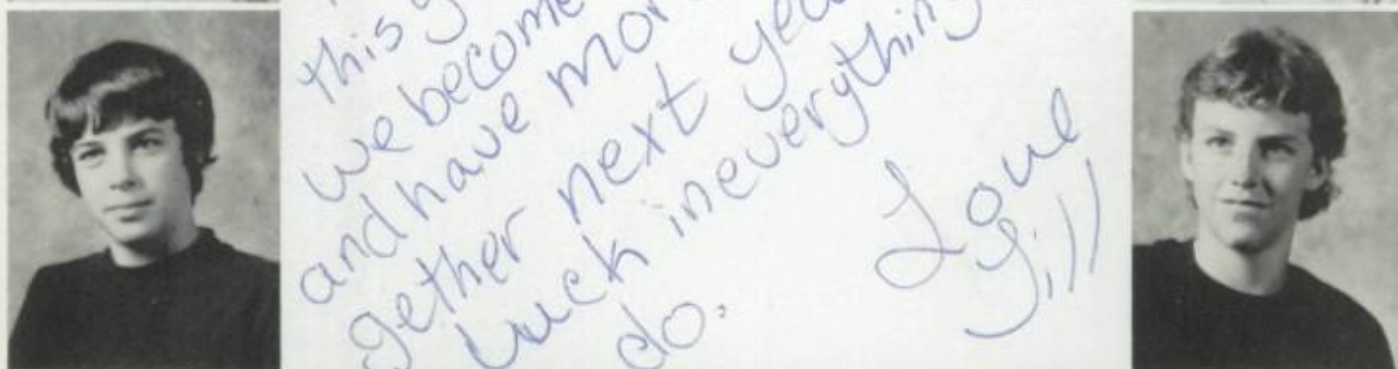 this
we become
and have mor
gether next yea
luck in everything
do.
Love
Jill